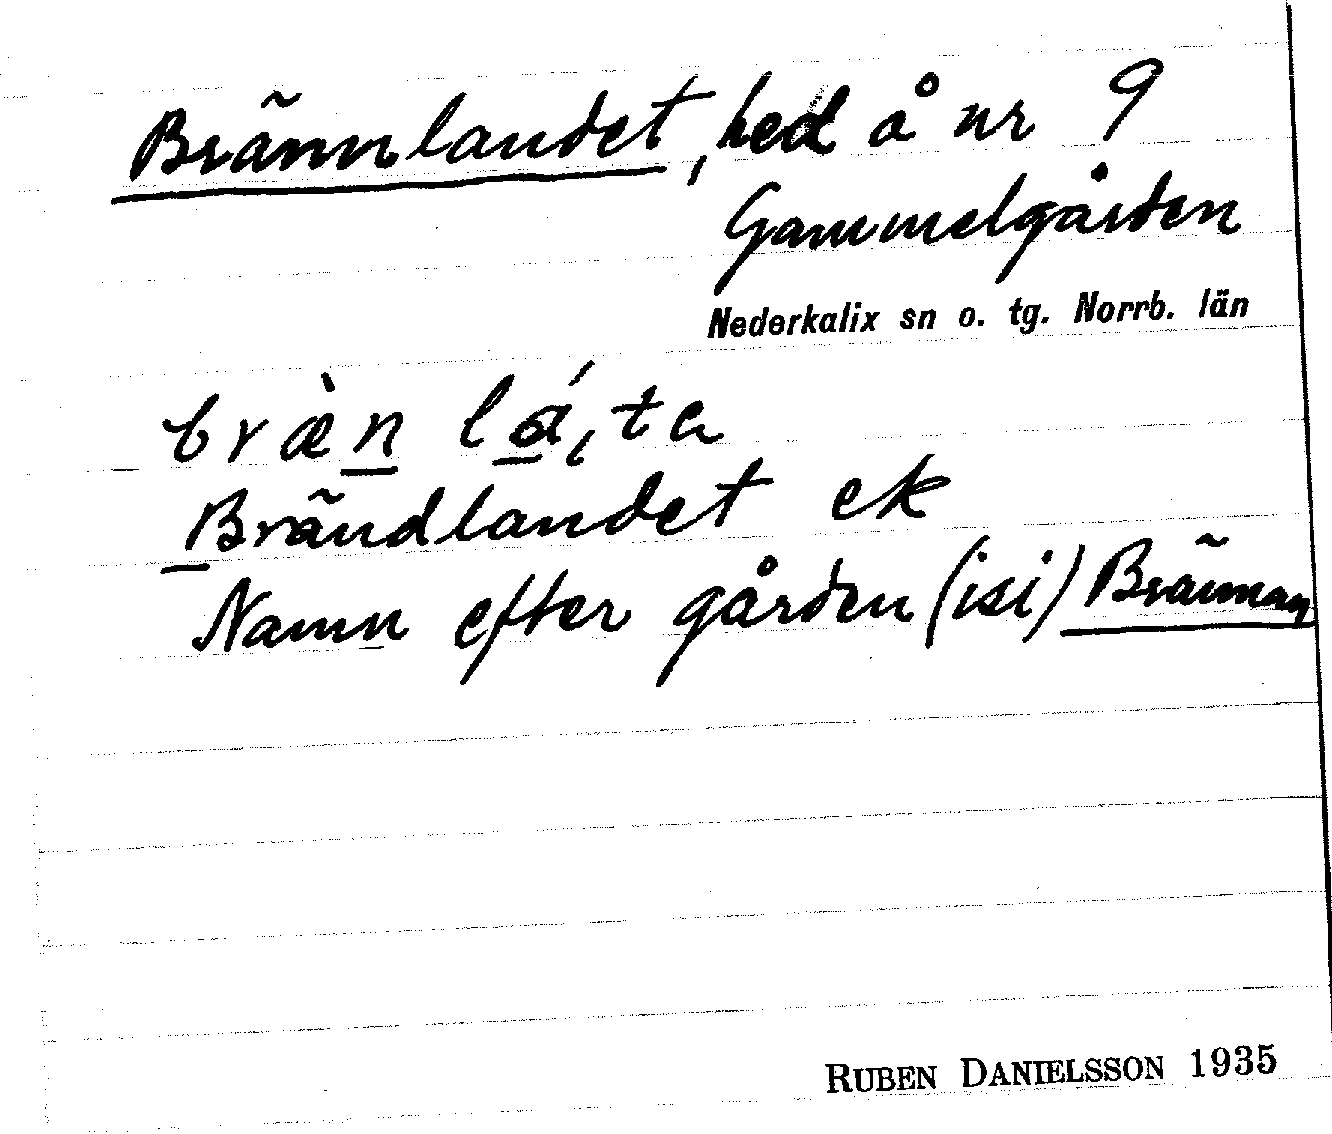 Brännlandet, hed å nr 9
Gammelgården
Nederkalix sn o. tg. Norrb. län
bræ̀n lá,ta
Brändlandet ek
Namn efter gården (isi) Brännan
RUBEN DANIELSSON 1935